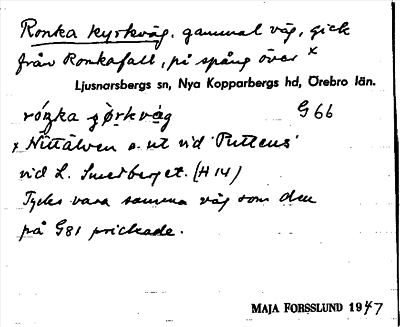 Ronka kyrkväg, gammal väg, gick
från Ronkafall, på spång över x
Ljusnarsbergs sn, Nya Kopparbergs hd, Örebro län.
G 66
x Nittälven o. ut vid 'Puttens'
vid L. Smedberget. (H 14)
Tycks vara samma väg som den
på G81 prickade.
MAJA FORSSLUND 1947